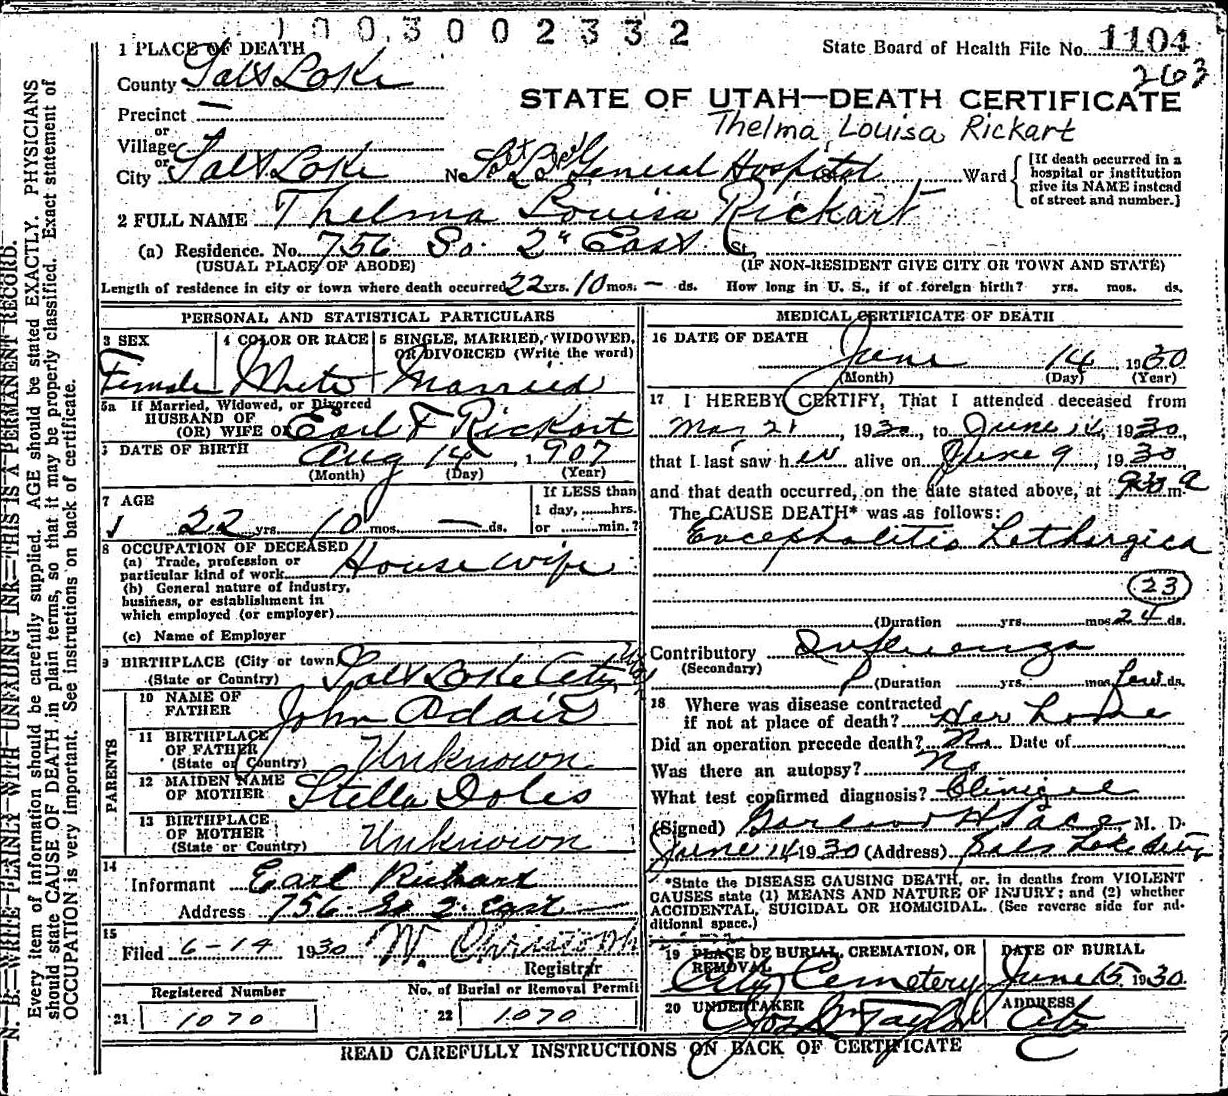 1003002332
State Board of Health File No. 1104
263
1 PLACE OF DEATH
County Salt Lake
STATE OF UTAH—DEATH CERTIFICATE
Precinct —
Thelma Louisa Rickart
or
Village
or
City Salt Lake No. Salt Lake General Hospital St. Ward
[If death occurred in a
hospital or institution
give its NAME instead
of street and number.]
2 FULL NAME Thelma Louisa Rickart
(a) Residence. No. 756 So. 2" East St.
(USUAL PLACE OF ABODE) (IF NON-RESIDENT GIVE CITY OR TOWN AND STATE)
Length of residence in city or town where death occurred 22 yrs. 10 mos. — ds. How long in U. S., if of foreign birth? yrs. mos. ds.
PERSONAL AND STATISTICAL PARTICULARS
3 SEX
Female
4 COLOR OR RACE
White
5 SINGLE, MARRIED, WIDOWED,
OR DIVORCED (Write the word)
Married
5a If Married, Widowed, or Divorced
HUSBAND OF
(OR) WIFE OF Earl F Rickart
DATE OF BIRTH Aug 14, 1907
(Month) (Day) (Year)
7 AGE
22 yrs. 10 mos. — ds.
If LESS than
1 day, hrs.
or min.?
8 OCCUPATION OF DECEASED
(a) Trade, profession or
particular kind of work House wife
(b) General nature of industry,
business, or establishment in
which employed (or employer)
(c) Name of Employer
9 BIRTHPLACE (City or town)
(State or Country) Salt Lake City
PARENTS
10 NAME OF
FATHER John Adair
11 BIRTHPLACE
OF FATHER
(State or Country) Unknown
12 MAIDEN NAME
OF MOTHER Stella Doles
13 BIRTHPLACE
OF MOTHER
(State or Country) Unknown
14
Informant Earl Rickart
Address 756 So 2 East
15
Filed 6-14 1930 W. Christ
Registrar
Registered Number
21 1070
No. of Burial or Removal Permit
22 1070
MEDICAL CERTIFICATE OF DEATH
16 DATE OF DEATH
June 14 1930
(Month) (Day) (Year)
17 I HEREBY CERTIFY, That I attended deceased from
Mar 21, 1930, to June 14, 1930,
that I last saw her alive on June 9, 1930
and that death occurred, on the date stated above, at 930 a m.
The CAUSE DEATH* was as follows:
Encephalitis Lethargica
23
(Duration yrs. mos. 24 ds.
Contributory Influenza
(Secondary)
(Duration yrs. mos. few ds.
18 Where was disease contracted
if not at place of death? Her home
Did an operation precede death? No. Date of
Was there an autopsy? No
What test confirmed diagnosis? Clinical
(Signed) H Pace, M. D.
June 14 1930 (Address) Salt Lake City
*State the DISEASE CAUSING DEATH, or, in deaths from VIOLENT
CAUSES state (1) MEANS AND NATURE OF INJURY; and (2) whether
ACCIDENTAL, SUICIDAL OR HOMICIDAL. (See reverse side for ad-
ditional space.)
19 PLACE OF BURIAL, CREMATION, OR
REMOVAL
City Cemetery
DATE OF BURIAL
June 15, 1930.
20 UNDERTAKER
Jos Wm Taylor
ADDRESS
City
READ CAREFULLY INSTRUCTIONS ON BACK OF CERTIFICATE
N. B.—WRITE PLAINLY WITH UNFADING INK—THIS IS A PERMANENT RECORD.
Every item of information should be carefully supplied. AGE should be stated EXACTLY. PHYSICIANS
should state CAUSE OF DEATH in plain terms, so that it may be properly classified. Exact statement of
OCCUPATION is very important. See instructions on back of certificate.